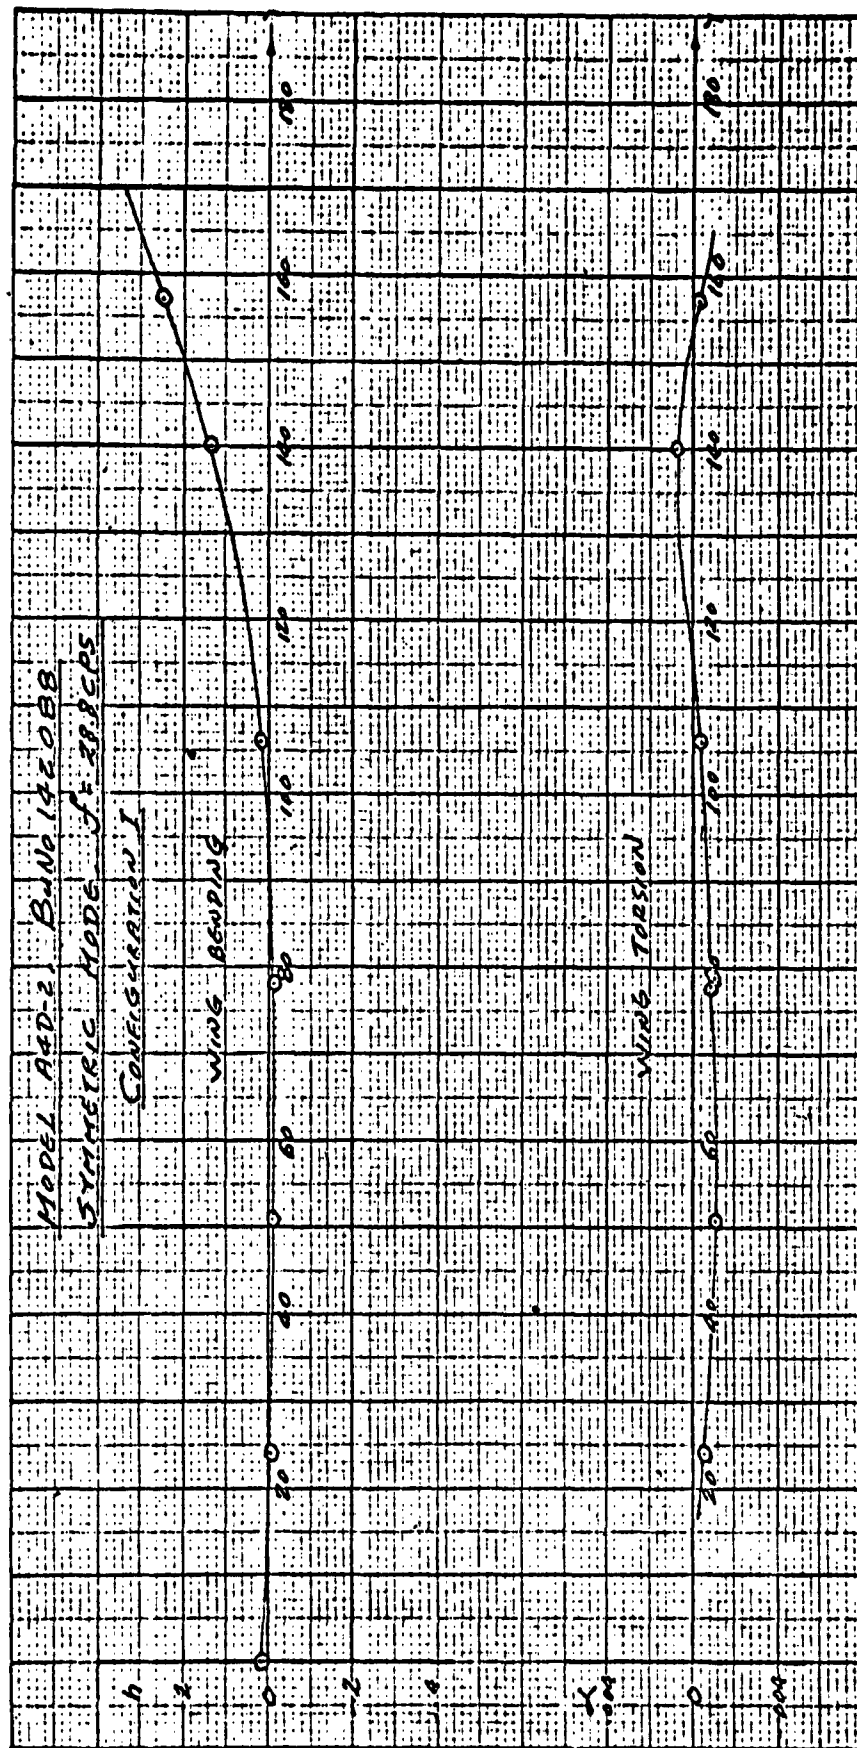 MODEL A4D-2, BUNO 142088
SYMMETRIC MODE f = 28.8 CPS
CONFIGURATION I
WING BENDING
h
.2
0
-.2
-.4
20
40
60
80
100
120
140
160
180
Y
WING TORSION
.004
0
.004
20
40
60
100
120
140
160
180
Y